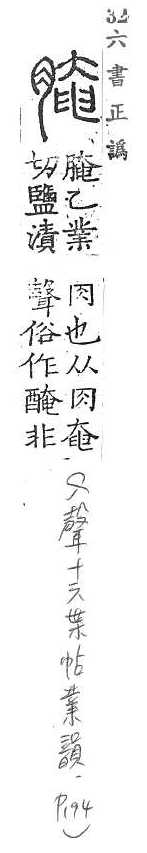 32 六書正譌
腌
腌乙業
切鹽漬
肉也从肉奄
聲俗作醃非
(入聲十六葉帖業韻. P.194)